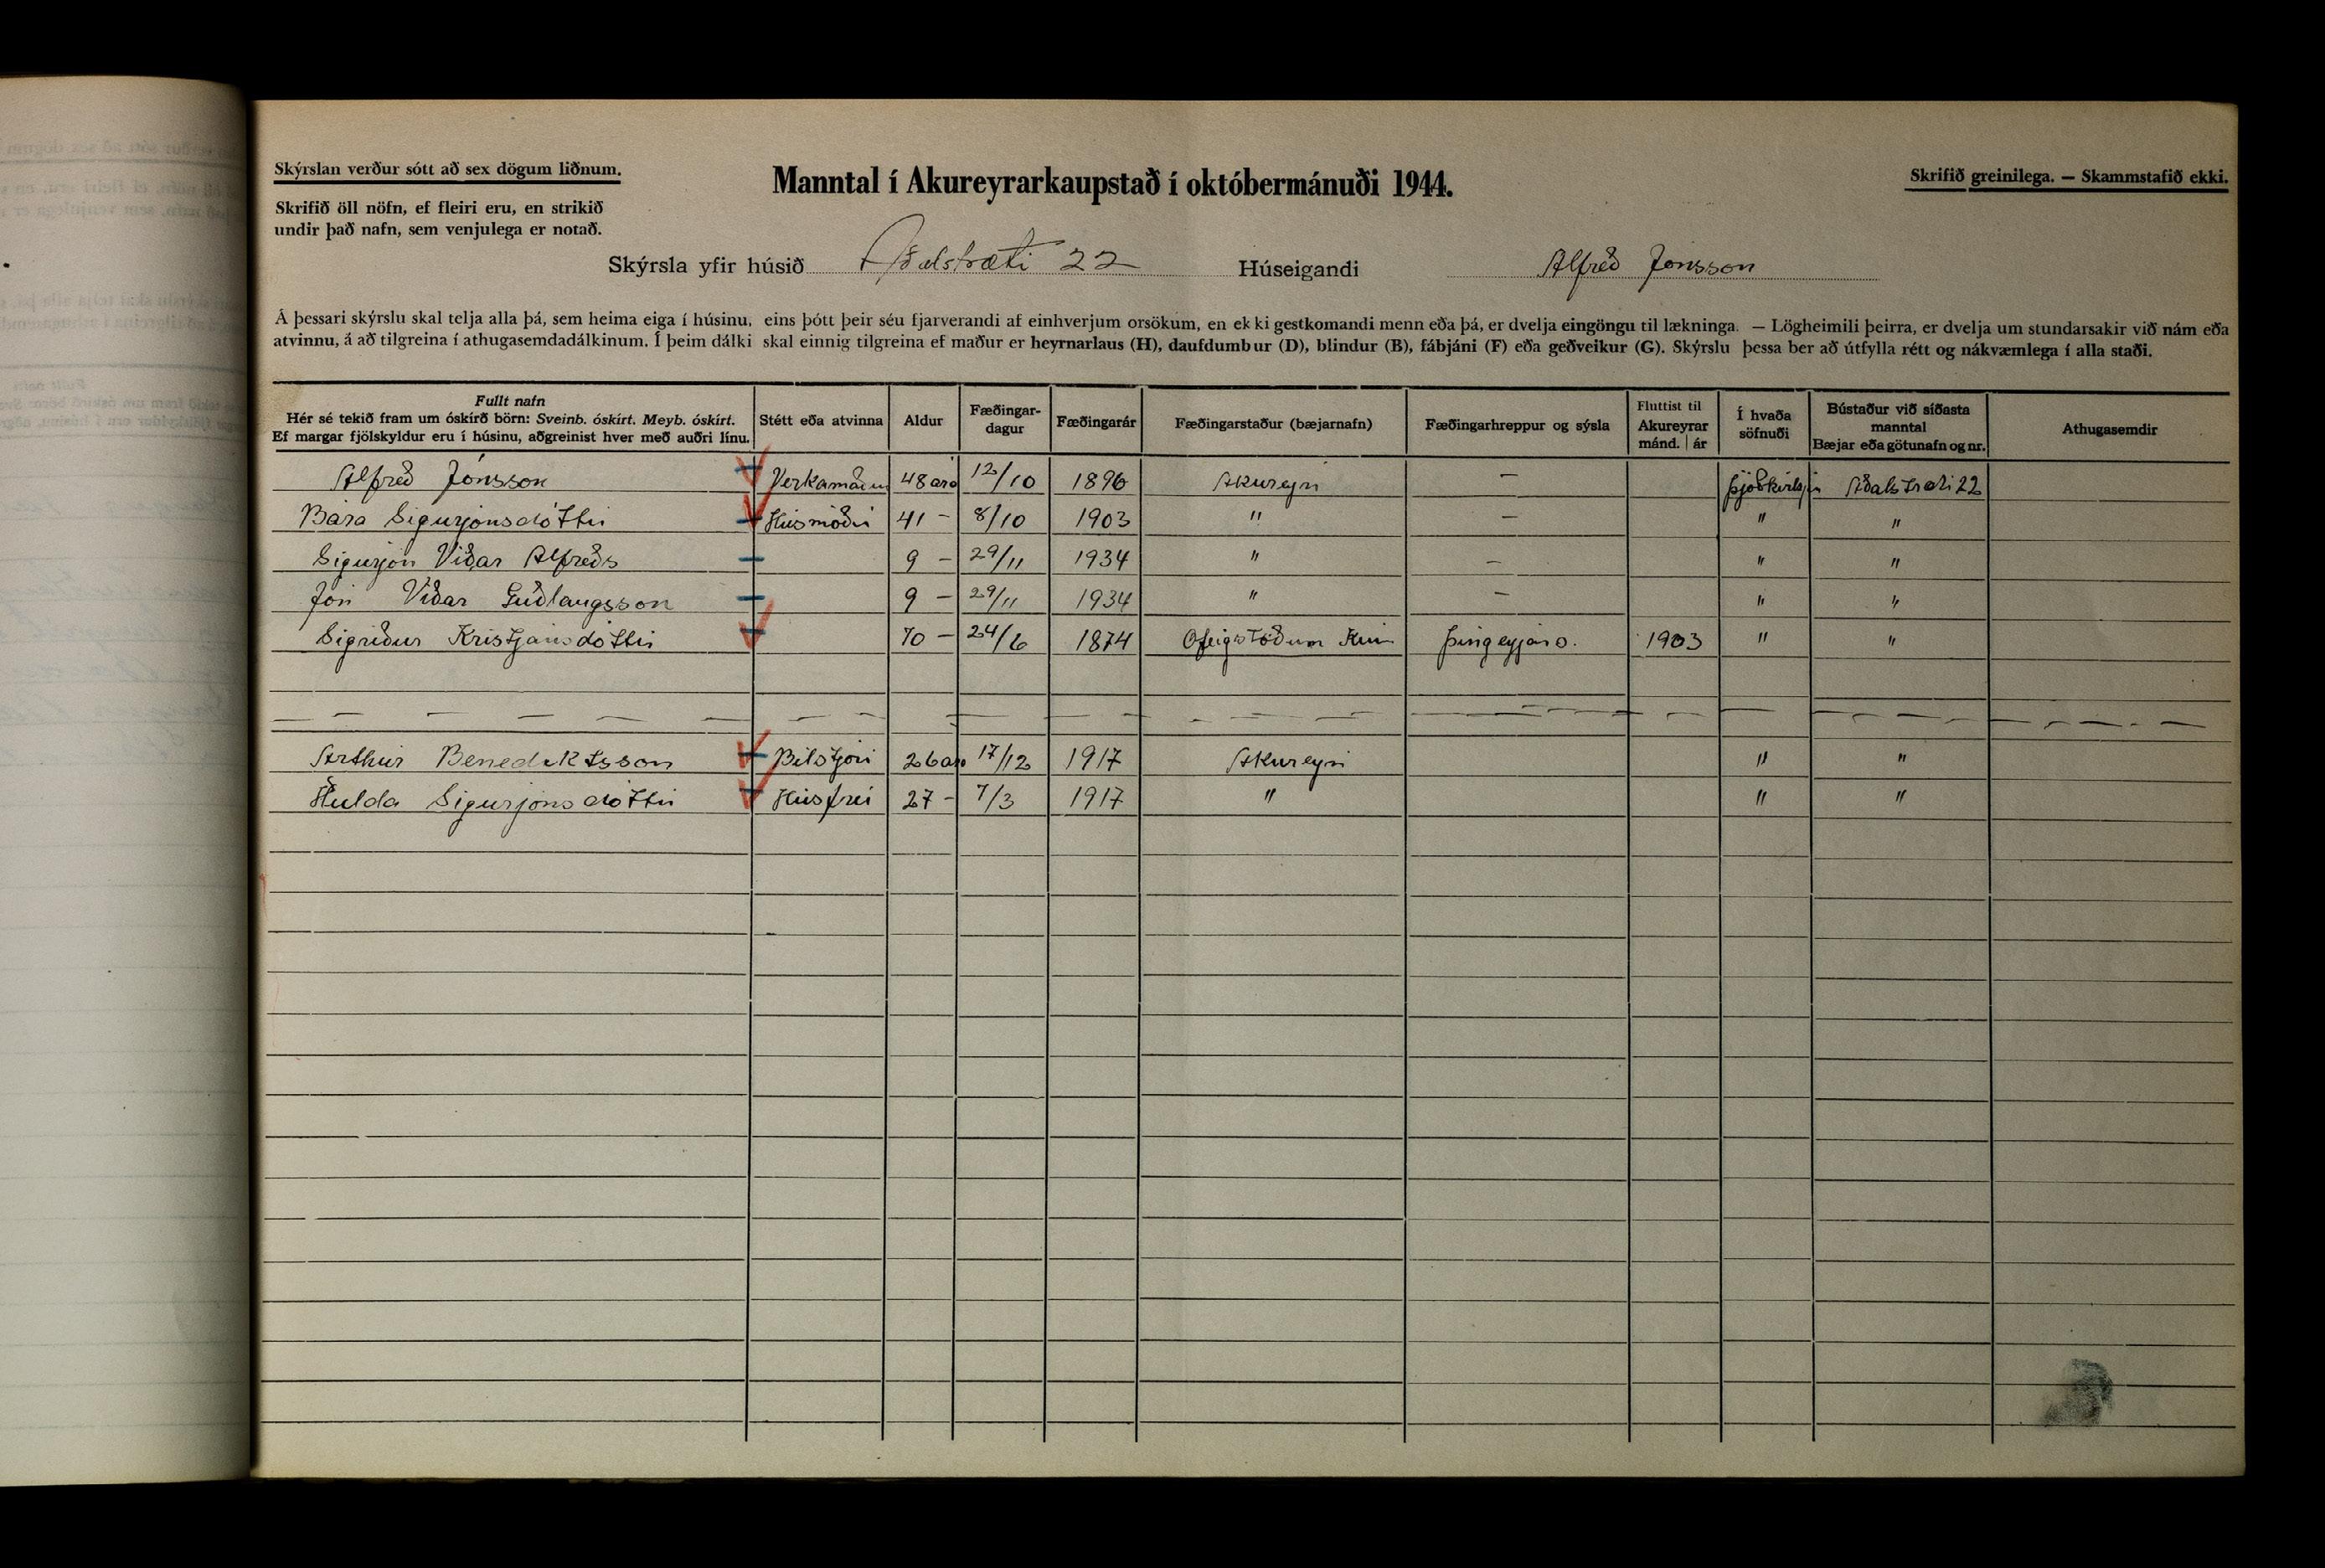 Skýrslan verður sótt að sex dögum liðnum.
Skrifið öll nöfn, ef fleiri eru, en strikið
undir það nafn, sem venjulega er notað.
Manntal í Akureyrarkaupstað í októbermánuði 1944.
Skrifið greinilega. — Skammstafið ekki.
Skýrsla yfir húsið Aðalstræti 22 Húseigandi Alfreð Jónsson
Á þessari skýrslu skal telja alla þá, sem heima eiga í húsinu, eins þótt þeir séu fjarverandi af einhverjum orsökum, en ekki gestkomandi menn eða þá, er dvelja eingöngu til lækninga. — Lögheimili þeirra, er dvelja um stundarsakir við nám eða
atvinnu, á að tilgreina í athugasemdadálkinum. Í þeim dálki skal einnig tilgreina ef maður er heyrnarlaus (H), daufdumbur (D), blindur (B), fábjáni (F) eða geðveikur (G). Skýrslu þessa ber að útfylla rétt og nákvæmlega í alla staði.
Fullt nafn
Hér sé tekið fram um óskírð börn: Sveinb. óskírt. Meyb. óskírt.
Ef margar fjölskyldur eru í húsinu, aðgreinist hver með auðri línu.
Stétt eða atvinna
Aldur
Fæðingar-
dagur
Fæðingarár
Fæðingarstaður (bæjarnafn)
Fæðingarhreppur og sýsla
Fluttist til
Akureyrar
mánd. | ár
Í hvaða
söfnuði
Bústaður við síðasta
manntal
Bæjar eða götunafn og nr.
Athugasemdir
Alfreð Jónsson Verkamaður 48 ára 12/10 1896 Akureyri — Þjóðkirkju Aðalstræti 22
Bára Sigurjónsdóttir Húsmóðir 41 - 8/10 1903 " — " "
Sigurjón Viðar Alfreðs 9 - 29/11 1934 " — " "
Jón Viðar Guðlaugsson 9 - 29/11 1934 " — " "
Sigríður Kristjánsdóttir 70 - 24/6 1874 Ófeigstöðum Kinn Þingeyjars. 1903 " "
Arthur Benediktsson Bílstjóri 26 ára 17/12 1917 Akureyri " "
Hulda Sigurjónsdóttir Húsfrú 27 - 7/3 1917 " " "